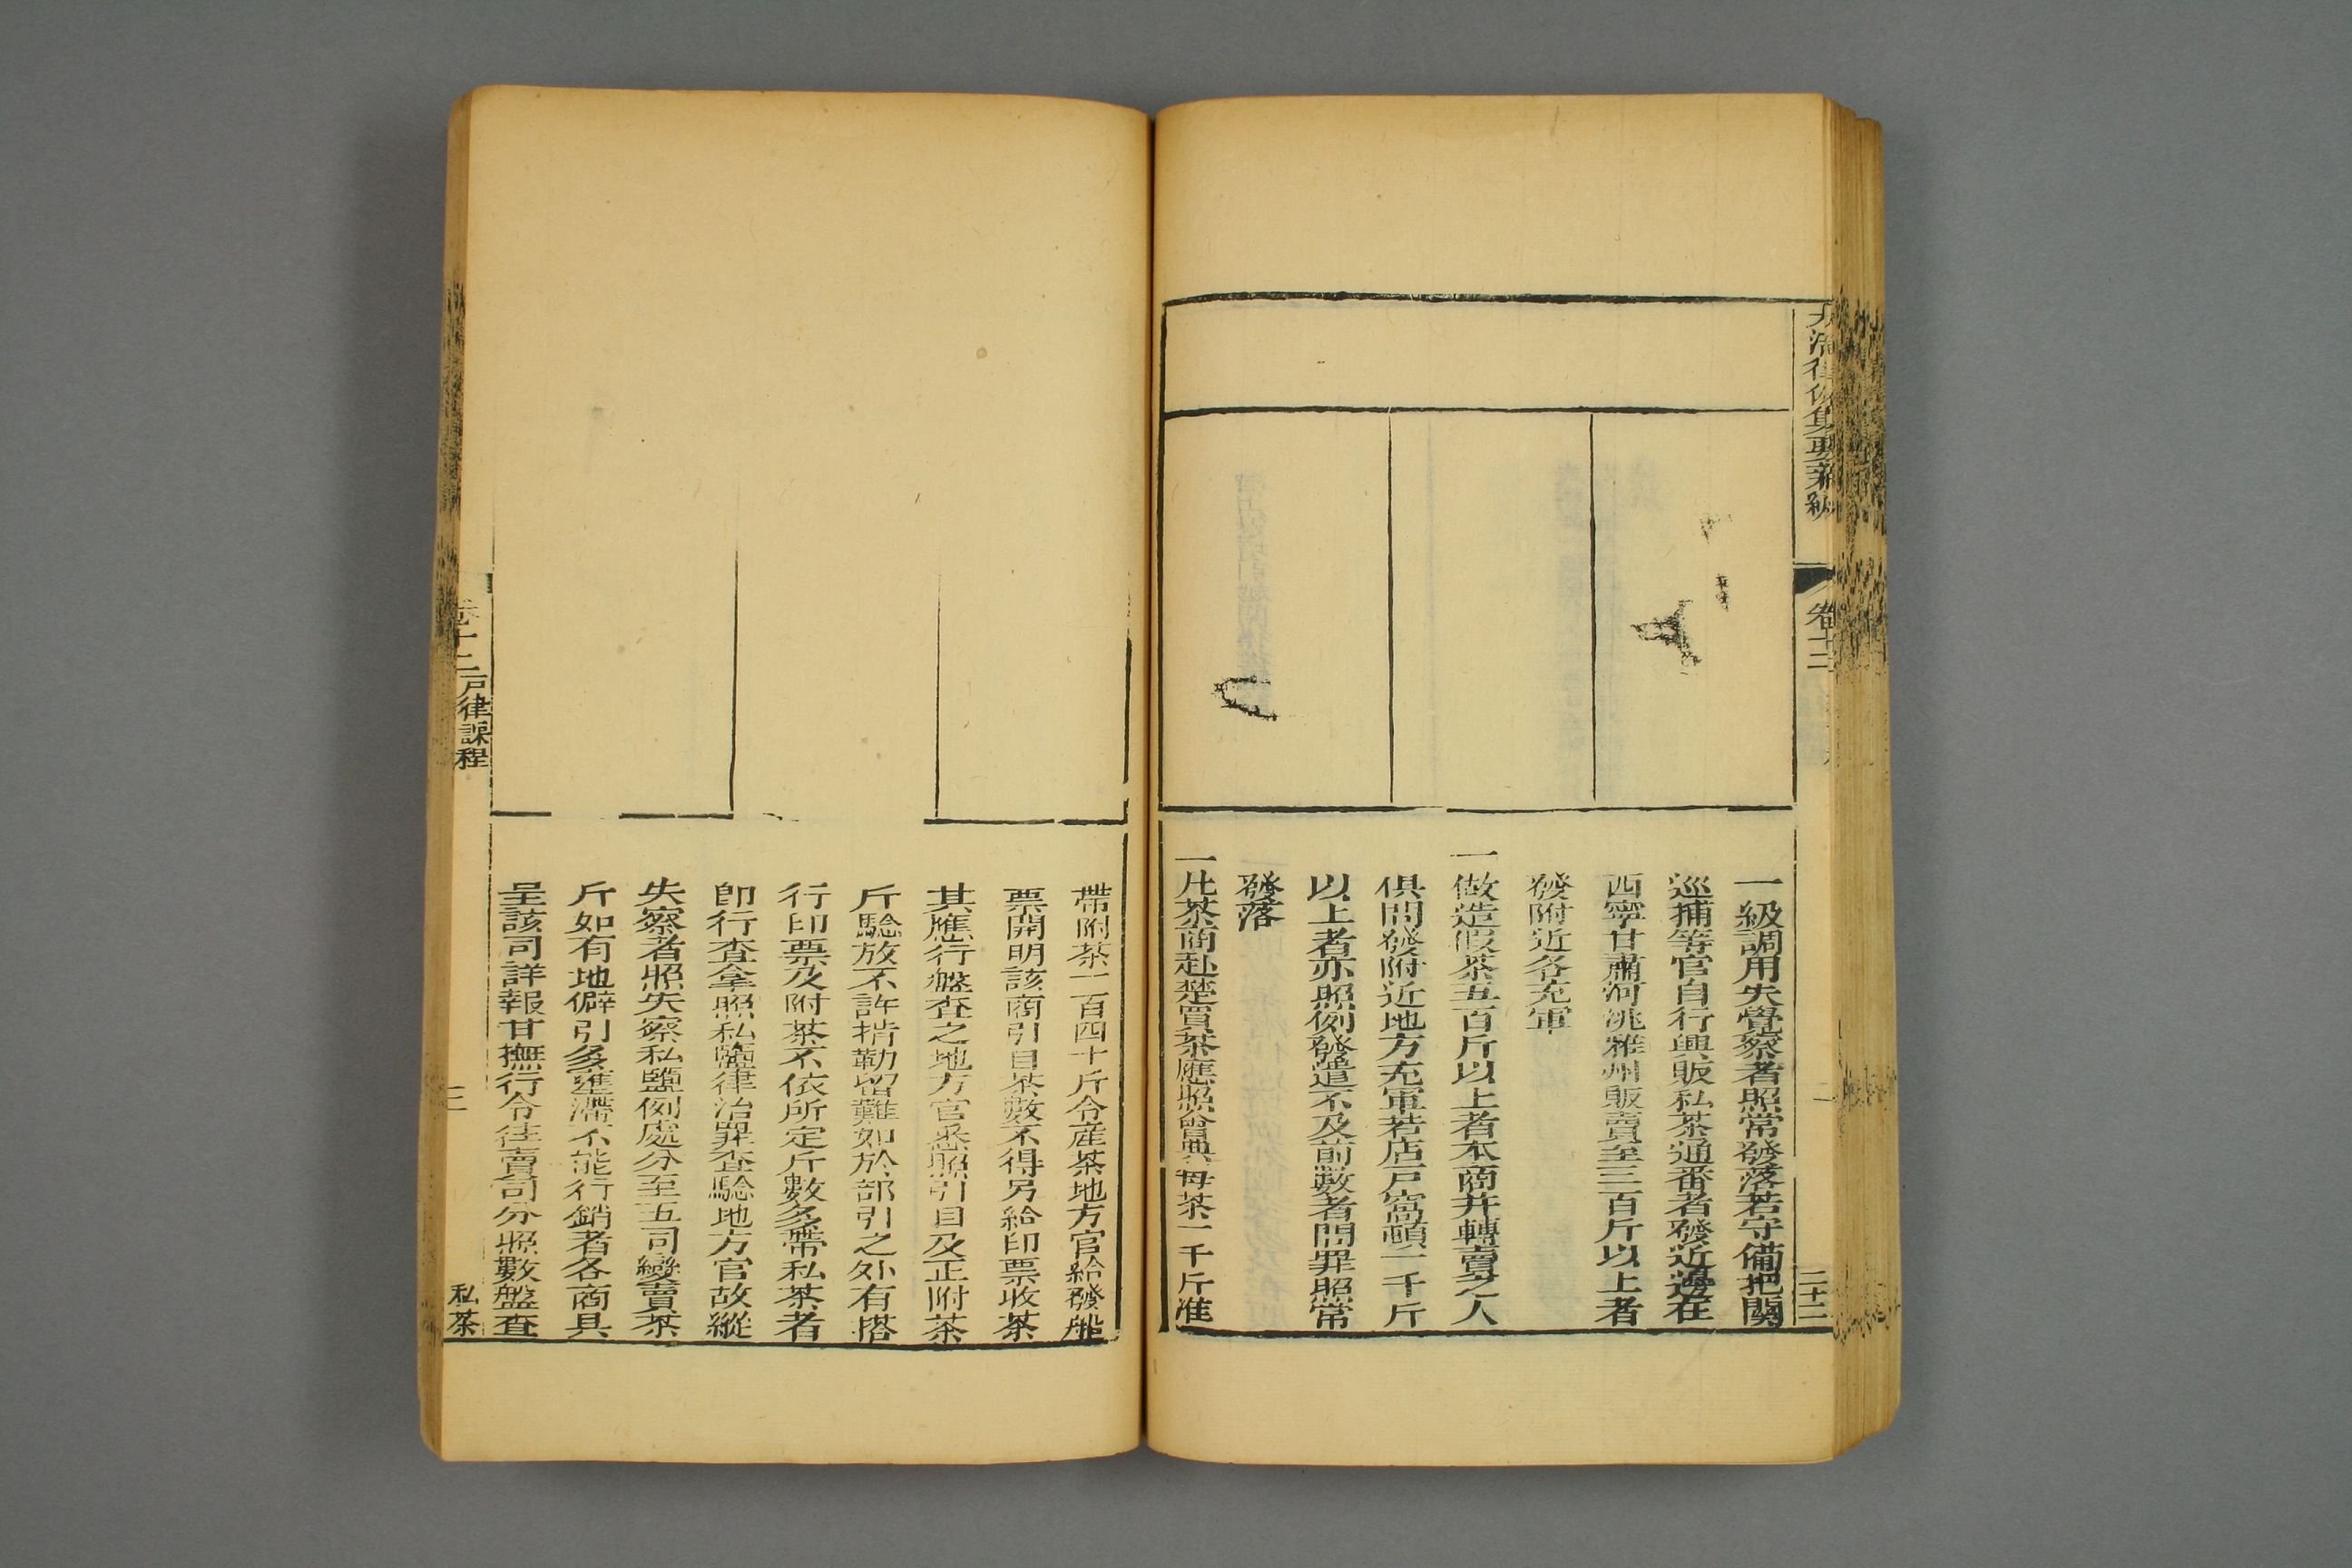 大清律例集要新編
卷十二
二十二
一級調用失覺察者照常發落若守備把關
巡捕等官自行興販私茶通番者發近邊在
西寧甘肅河洮雅州販賣至三百斤以上者
發附近各充軍
一做造假茶五百斤以上者本商并轉賣之人
俱問發附近地方充軍若店戶窩頓一千斤
以上者亦照例發遣不及前數者問罪照常
發落
一凡茶商赴楚買茶應照會典每茶一千斤准
帶附茶一百四十斤令產茶地方官給發船
票開明該商引目茶數不得另給印票收茶
其應行盤查之地方官悉照引目及正附茶
斤驗放不許掯勒留難如於部引之外有搭
行印票及附茶不依所定斤數多帶私茶者
即行查拿照私鹽律治罪查驗地方官故縱
失察者照失察私鹽例處分至五司變賣茶
斤如有地僻引多壅滯不能行銷者各商具
呈該司詳報甘撫行令往賣司分照數盤查
卷十二戶律課程
私茶